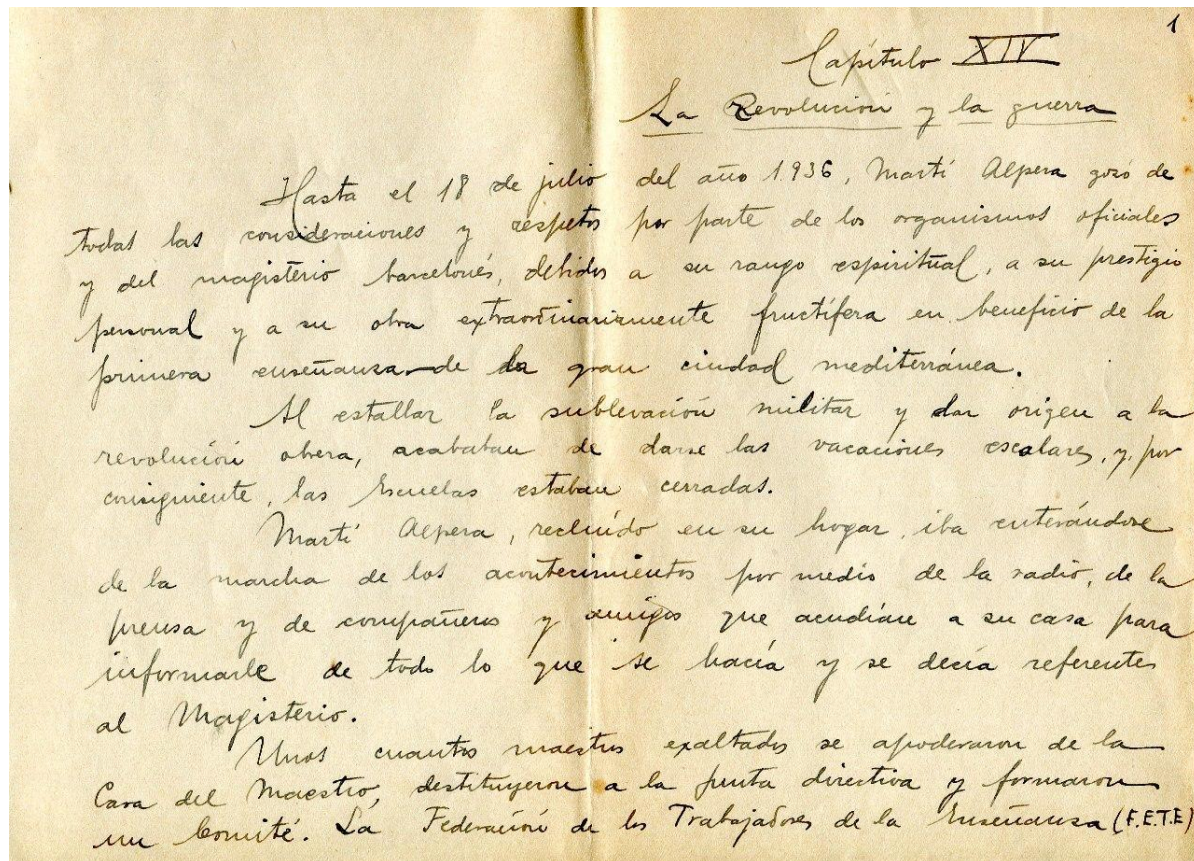 1
Capítulo XIV
La Revolución y la guerra
Hasta el 18 de julio del año 1.936, Martí Alpera gozó de
todas las consideraciones y respetos por parte de los organismos oficiales
y del magisterio barcelonés, debidos a su rango espiritual, a su prestigio
personal y a su obra extraordinariamente fructífera en beneficio de la
primera enseñanza de la gran ciudad mediterránea.
Al estallar la sublevación militar y dar origen a la
revolución obrera, acababan de darse las vacaciones escolares, y, por
consiguiente, las Escuelas estaban cerradas.
Martí Alpera, recluído en su hogar, iba enterándose
de la marcha de los acontecimientos por medio de la radio, de la
prensa y de compañeros y amigos que acudían a su casa para
informarle de todo lo que se hacía y se decía referentes
al Magisterio.
Unos cuantos maestros exaltados se apoderaron de la
Casa del Maestro, destituyeron a la junta directiva y formaron
un Comité. La Federación de los Trabajadores de la Enseñanza (F.E.T.E)